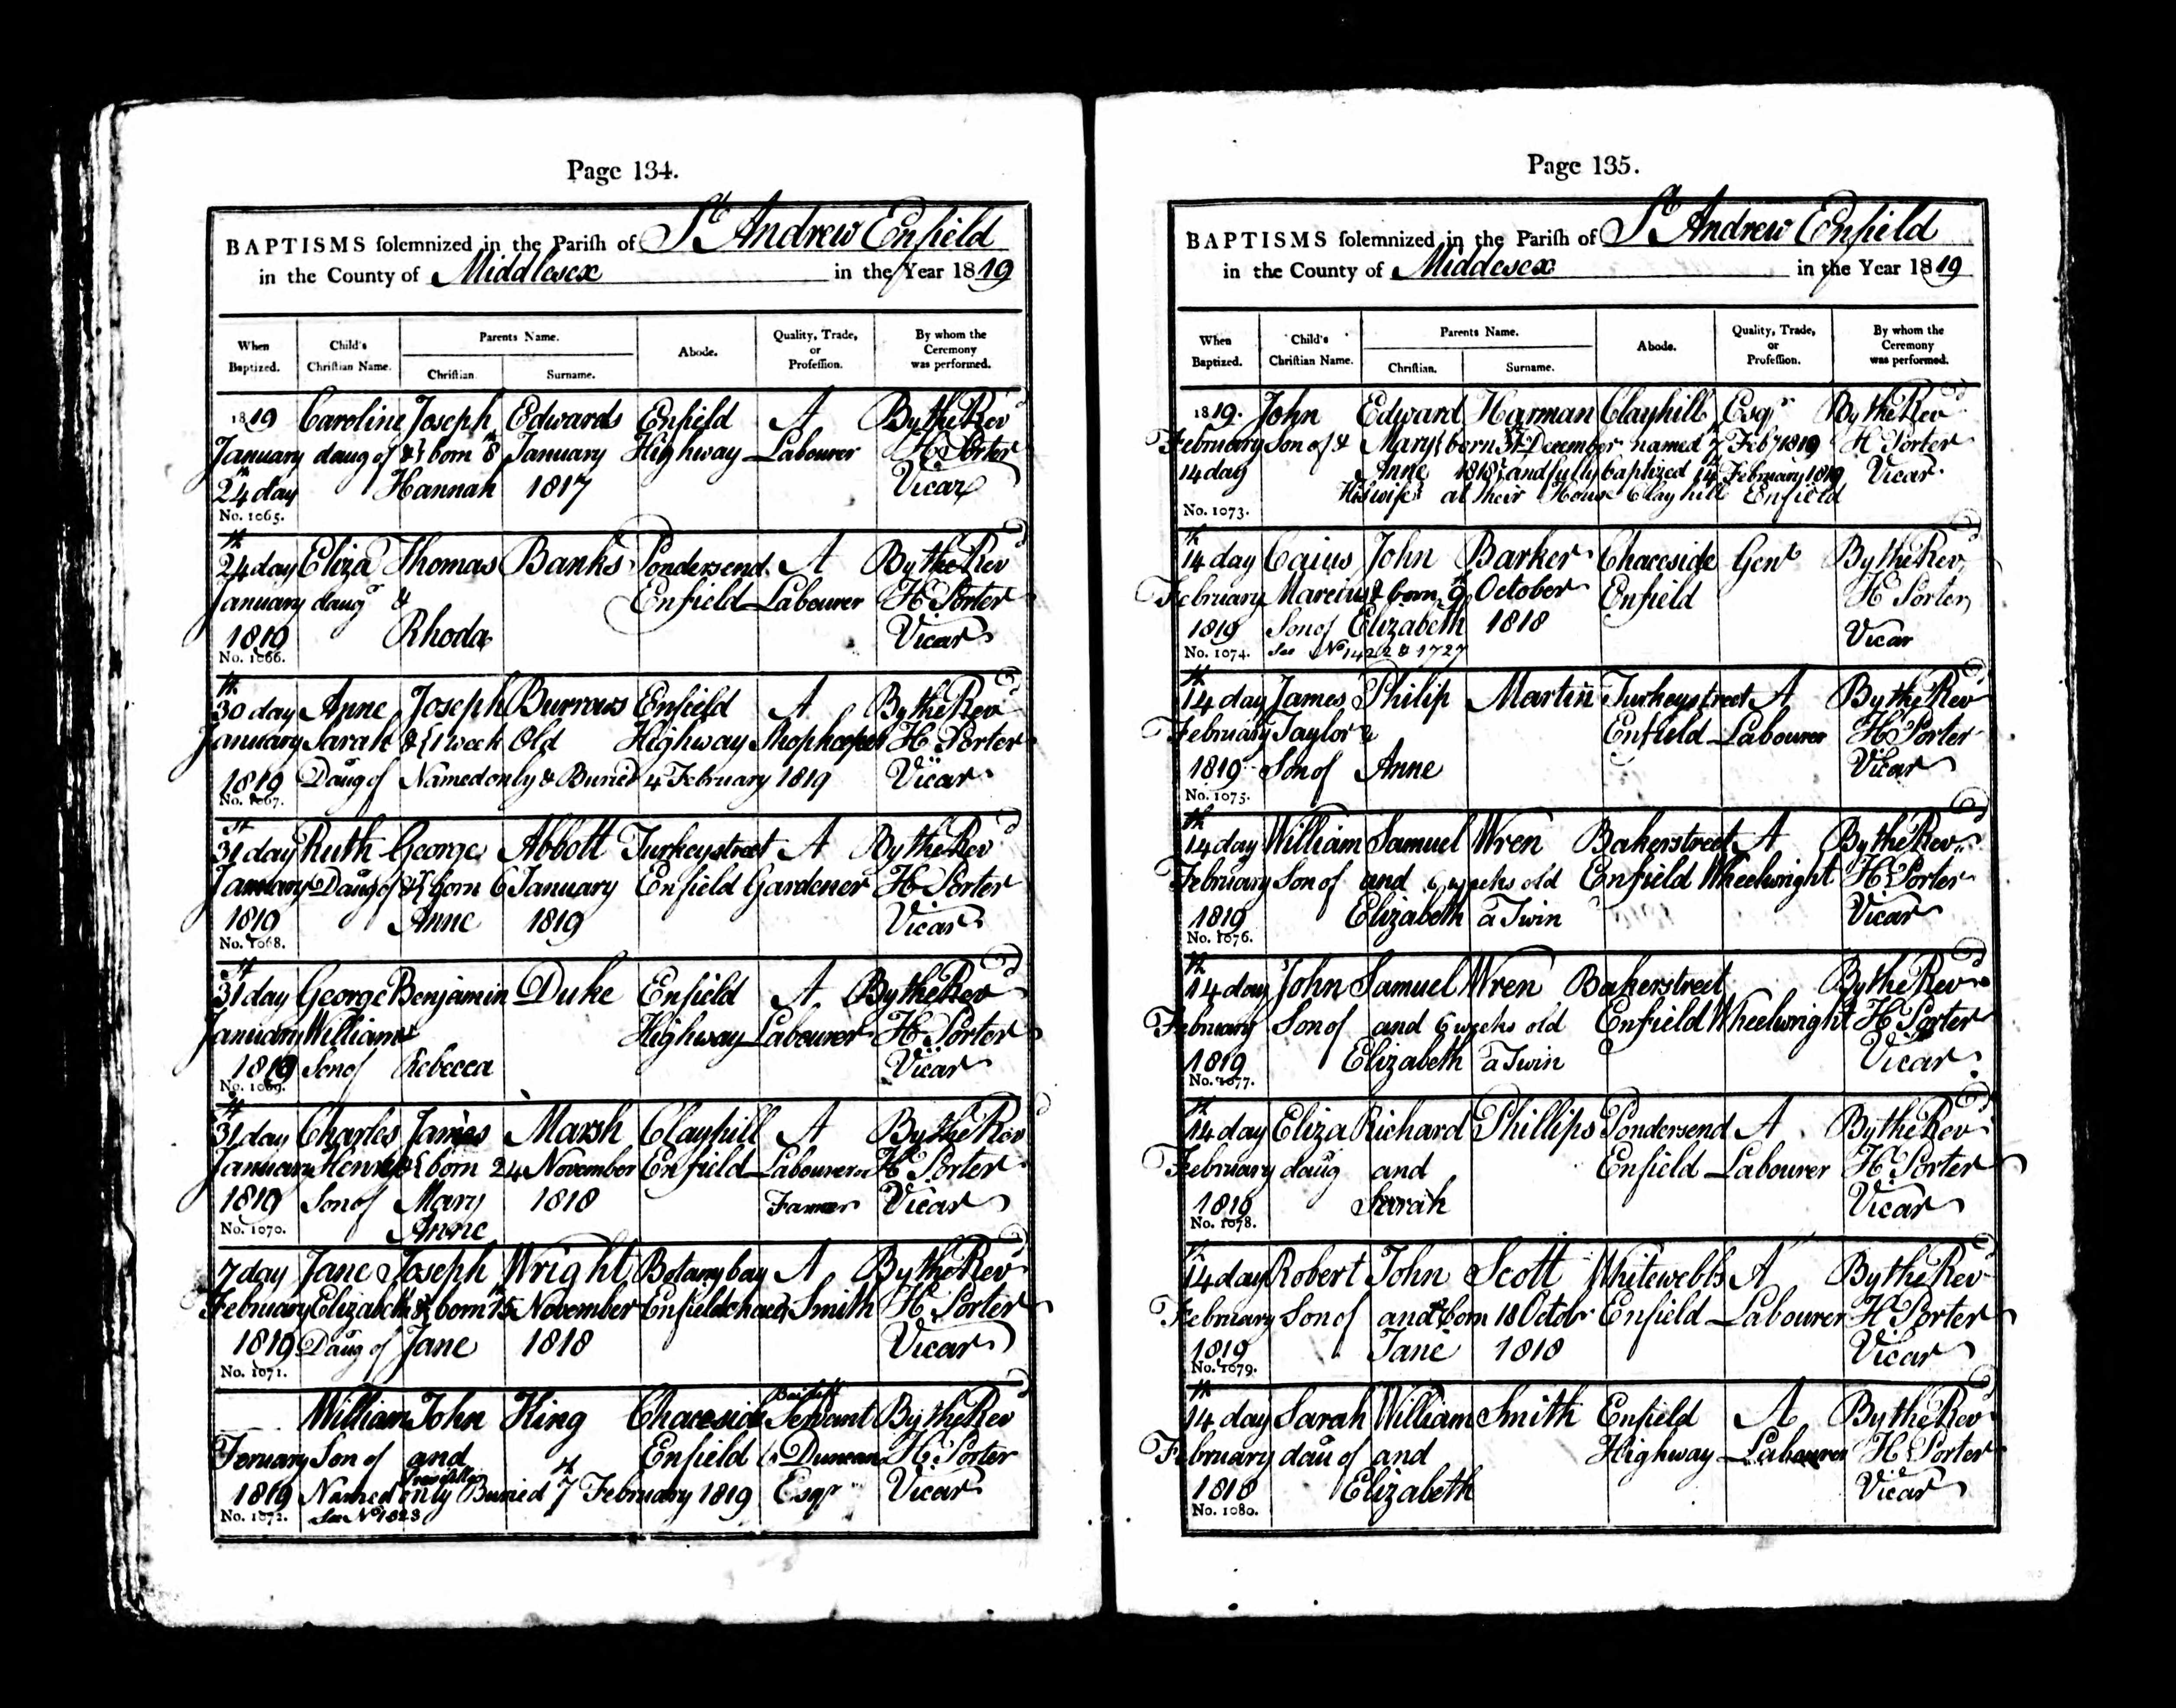 Page 134.
BAPTISMS solemnized in the Parish of St Andrew Enfield
in the County of Middlesex in the Year 1819
When Baptized. Child's Christian Name. Parents Name. Christian Surname. Abode. Quality, Trade, or Profession. By whom the Ceremony was performed.
1819 Caroline Joseph Edwards Enfield A By the Revd
January daug of & born 8th January Highway Labourer H Porter
24th day Hannah 1817 Vicar
No. 1065.
24th day Eliza Thomas Banks Pondersend A By the Revd
January daugr & Enfield Labourer H Porter
1819 Rhoda Vicar
No. 1066.
30th day Anne Joseph Burrows Enfield A By the Revd
January Sarah & 1 week Old Highway Shopkeeper H Porter
1819 Daug of Named only & Buried 4 February 1819 Vicar
No. 1067.
31st day Ruth George Abbott Turkeystreet A By the Revd
January Daug of & born 6 January Enfield Gardener H Porter
1819 Anne 1819 Vicar
No. 1068.
31st day George Benjamin Duke Enfield A By the Revd
January William & Highway Labourer H Porter
1819 Son of Rebecca Vicar
No. 1069.
31st day Charles James Marsh Clayhill A By the Revd
January Henry & born 24 November Enfield Labourer H Porter
1819 Son of Mary 1818 Farmer Vicar
No. 1070. Anne
7 day Jane Joseph Wright Botanybay A By the Revd
February Elizabeth & born 15th November Enfield chace Smith H Porter
1819 Daug of Jane 1818 Vicar
No. 1071.
Bailiff
William John King Chaceside Servant By the Revd
Feruary Son of and Enfield to Duncan H Porter
1819 Named only Buried 7th February 1819 Esqr Vicar
No. 1072. See No 1823
Page 135.
BAPTISMS solemnized in the Parish of St Andrew Enfield
in the County of Middesex in the Year 1819
When Baptized. Child's Christian Name. Parents Name. Christian. Surname. Abode. Quality, Trade, or Profession. By whom the Ceremony was performed.
1819. John Edward Harman Clayhill Esqr By the Revd
February Son of & Mary born 31st December named 7th Feby 1819 H Porter
14 day Anne 1818 and fully baptized 14th February 1819 Vicar
His wife at their House Clay hill Enfield
No. 1073.
14th day Caius John Barker Chaceside Gent By the Revd
February Marcius & born 9th October Enfield H Porter
1819 Son of Elizabeth 1818 Vicar
No. 1074. See No 1422 & 1727
14th day James Philip Martin Turkeystreet A By the Revd
February Taylor & Enfield Labourer H Porter
1819 Son of Anne Vicar
No. 1075.
14th day William Samuel Wren Bakerstreet A By the Revd
February Son of and 6 weeks old Enfield Wheelwright H Porter
1819 Elizabeth a Twin Vicar
No. 1076.
14th day John Samuel Wren Bakerstreet By the Revd
February Son of and 6 weeks old Enfield Wheelwright H Porter
1819 Elizabeth a Twin Vicar
No. 1077.
14th day Eliza Richard Phillips Pondersend A By the Revd
February daug and Enfield Labourer H Porter
1819 Sarah Vicar
No. 1078.
14th day Robert John Scott Whitewebbs A By the Revd
February Son of and born 18 Octobr Enfield Labourer H Porter
1819 Jane 1818 Vicar
No. 1079.
14th day Sarah William Smith Enfield A By the Revd
February dau of and Highway Labourer H Porter
1818 Elizabeth Vicar
No. 1080.